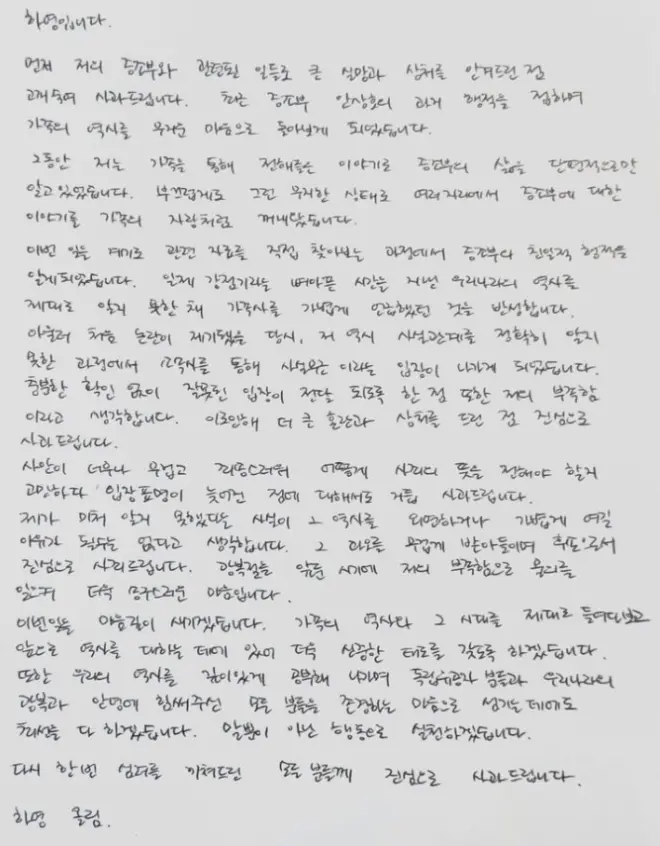 하영입니다.
먼저 저의 증조부와 관련된 일들로 큰 실망과 상처를 안겨드린 점
고개 숙여 사과드립니다. 최근 증조부 안상호의 과거 행적을 접하며
가족의 역사를 무거운 마음으로 돌아보게 되었습니다.
그동안 저는 가족을 통해 전해들은 이야기로 증조부의 삶을 단편적으로만
알고 있었습니다. 부끄럽게도 그런 무지한 상태로 여러자리에서 증조부에 대한
이야기를 가족의 자랑처럼 꺼내왔습니다.
이번 일을 계기로 관련 자료를 직접 찾아보는 과정에서 증조부의 친일적 행적을
알게되었습니다. 일제 강점기라는 뼈아픈 시간을 지닌 우리나라의 역사를
제대로 알지 못한 채 가족사를 가볍게 언급했던 것을 반성합니다.
아울러 처음 논란이 제기됐을 당시, 저 역시 사실관계를 정확히 알지
못한 과정에서 소속사를 통해 사실무근이라는 입장이 나가게 되었습니다.
충분한 확인 없이 잘못된 입장이 전달 되도록 한 점 또한 저의 부족함
이라고 생각합니다. 이로인해 더 큰 혼란과 상처를 드린 점 진심으로
사과드립니다.
사안이 너무나 무겁고 죄송스러워 어떻게 사죄의 뜻을 전해야 할지
고민하다 입장표명이 늦어진 점에 대해서도 거듭 사과드립니다.
제가 미처 알지 못했다는 사실이 그 역사를 외면하거나 가볍게 여길
이유가 될수는 없다고 생각합니다. 그 과오를 무겁게 받아들이며 후손으로서
진심으로 사죄드립니다. 광복절을 앞둔 시기에 저의 부족함으로 물의를
일으켜 더욱 송구스러운 마음입니다.
이번일을 마음깊이 새기겠습니다. 가족의 역사와 그 시대를 제대로 들여다보고
앞으로 역사를 대하는 데에 있어 더욱 신중한 태도를 갖도록 하겠습니다.
또한 우리의 역사를 깊이있게 공부해 나가며 독립유공자 분들과 우리나라의
광복과 안녕에 힘써주신 모든 분들을 존경하는 마음으로 섬기는 데에도
최선을 다 하겠습니다. 말뿐이 아닌 행동으로 실천하겠습니다.
다시 한번 심려를 끼쳐드린 모든 분들께 진심으로 사과드립니다.
하영 올림.